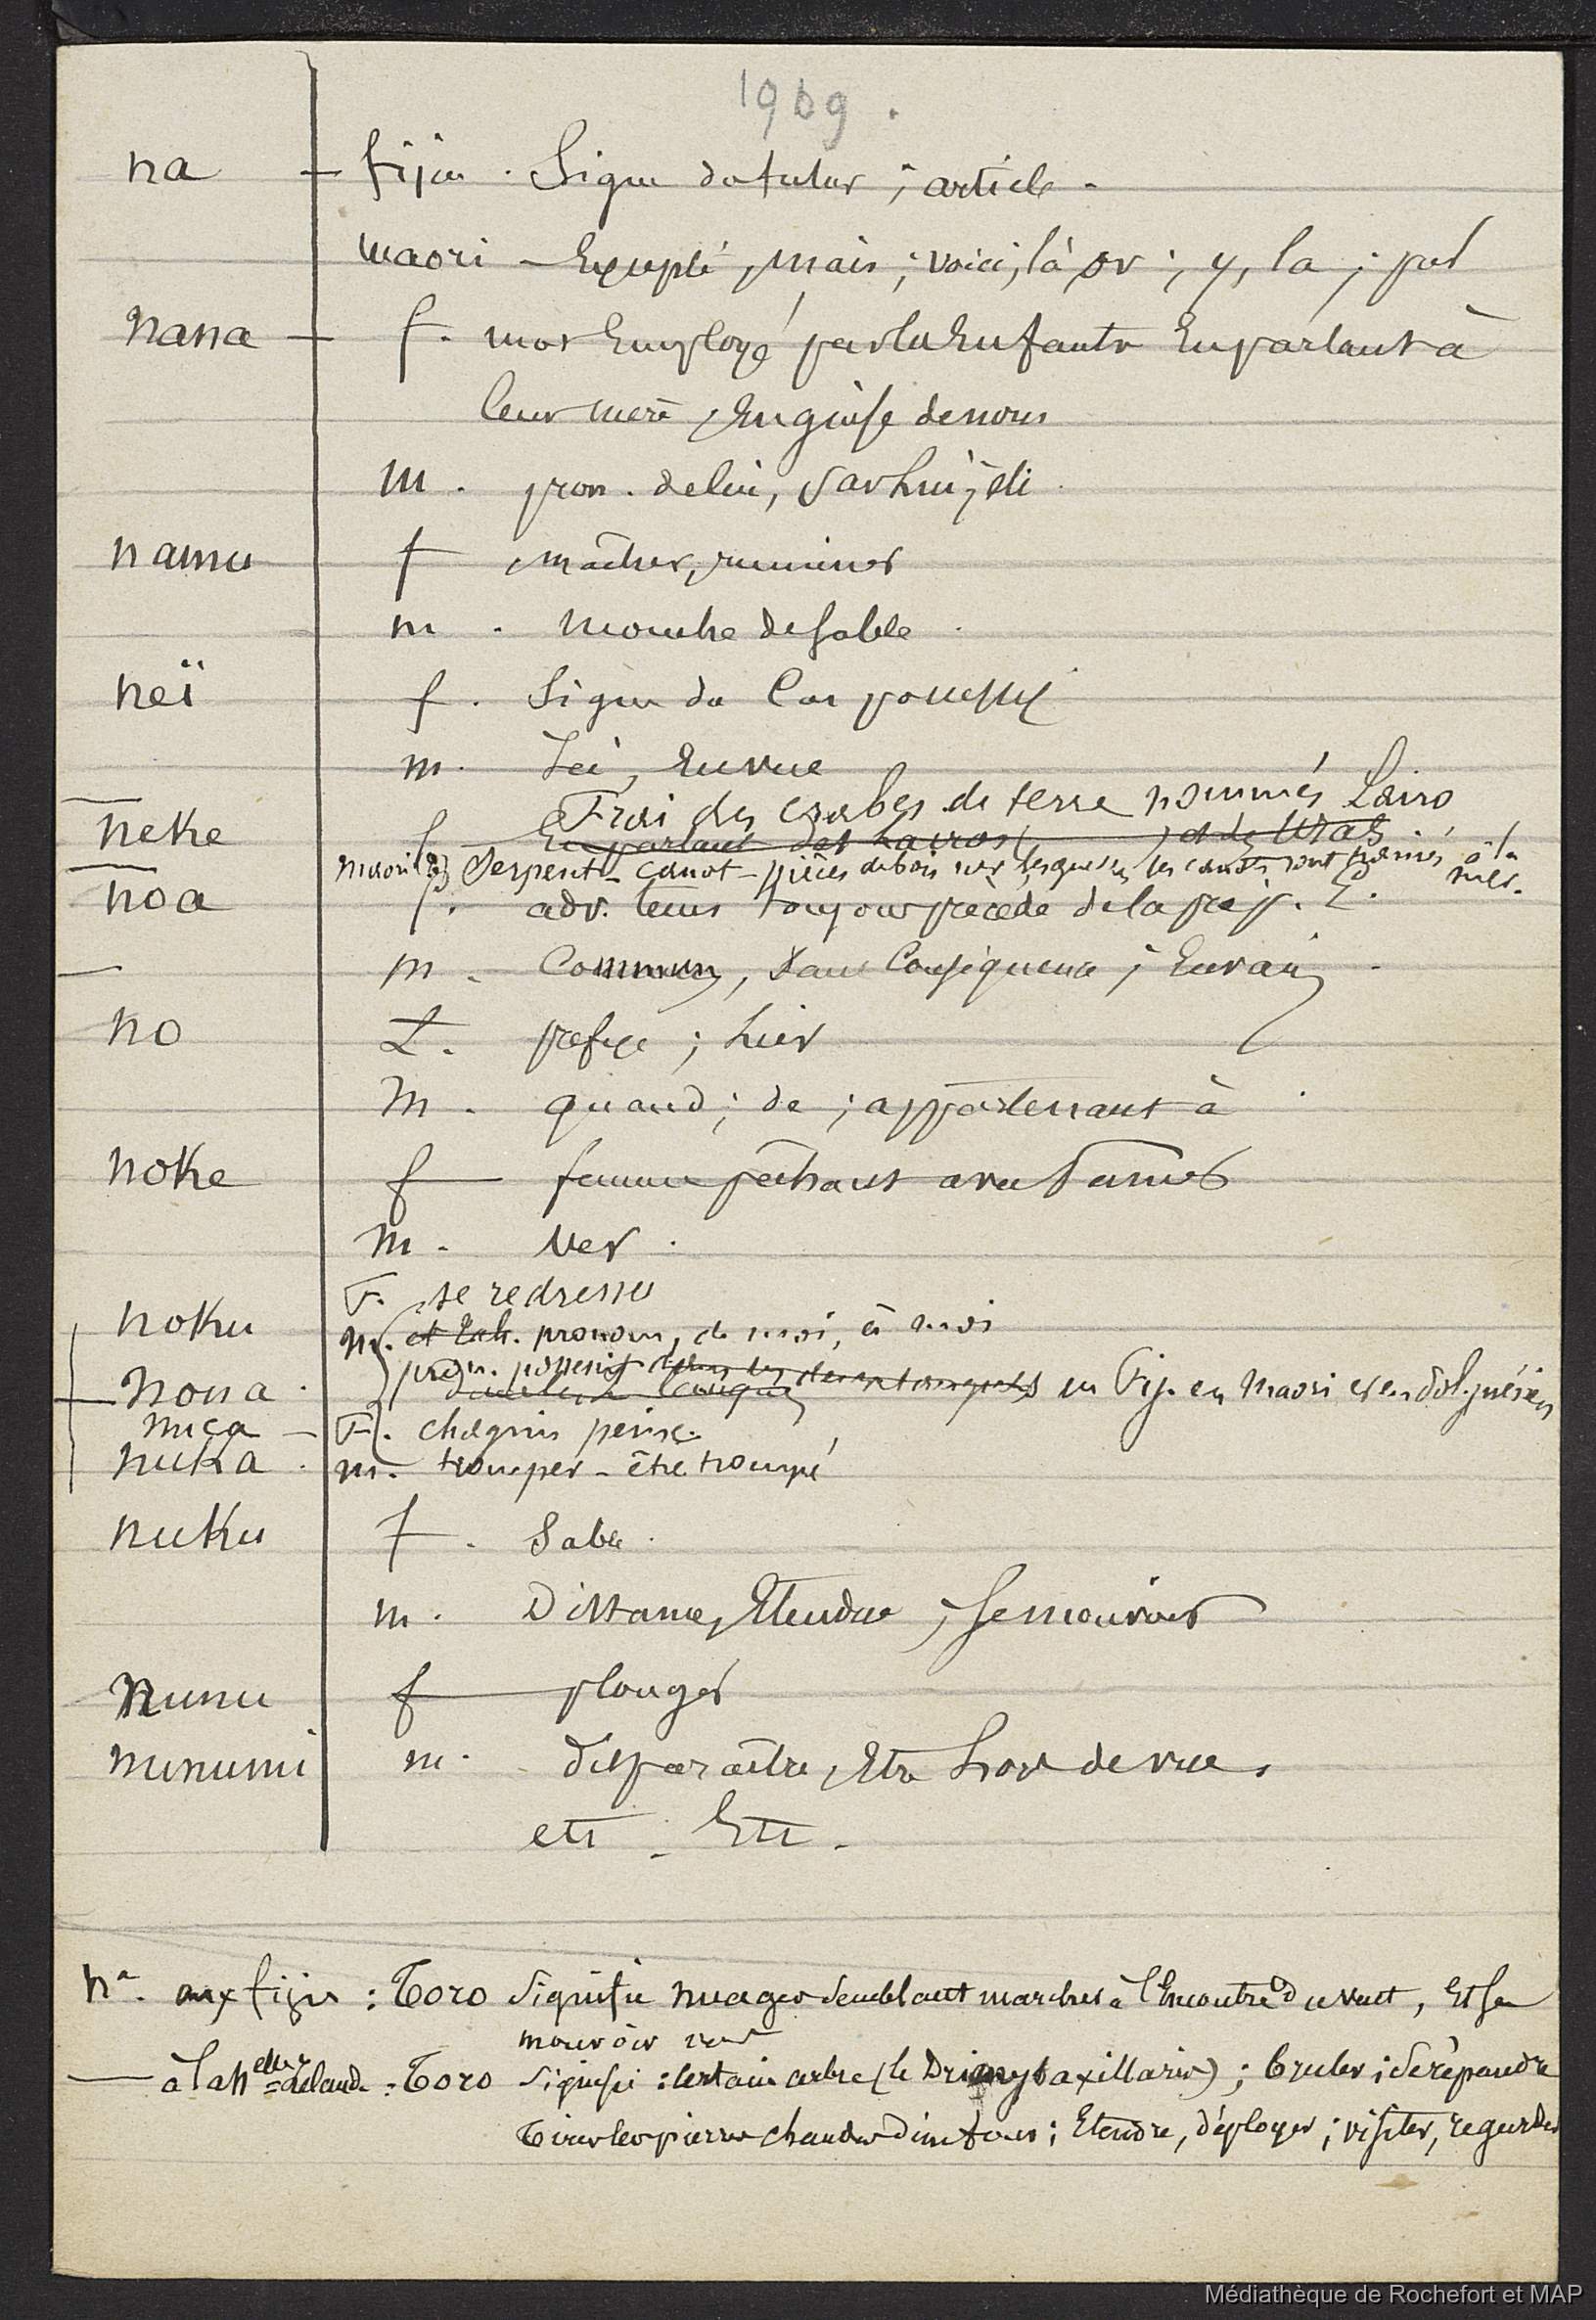 1969.
na — fijien. Signe du futur ; article.
maori — Explétif, mais ; voici, là, or ; y, la ; par
nana — f. mot Employé par les Enfants En parlant à
leur mère, En guise de nous
m. pron. de lui, par lui,
namu f mâcher, ruminer
m. Mouche de sable.
neï f. Signe du Cas possessif
m. Ici, En vue
Frai des crabes de terre nommés Lairo
neke f. En parlant des Lairos et des Ura
maori Serpent – canot – pièces de bois sur lesquelles les canots sont trainés à la mer.
noa f. adv. tems toujours précédé de la prép. E.
m. Commun, Sans Conséquence ; En vain
no f. prefixe ; hier
m. quand ; de ; appartenant à
noke f femme pêchant avec
m. Ver.
F. se redresser
noku m. et Tah. pronom, de moi, à moi
nona pron. possessif dans les deux langues en Fij. en Maori et en Polynésien
nuca — F. chagrin peine.
nuka m. tromper – être trompé
nuku f. Sable.
m. Distance, Etendue ; Se mouvoir
nunu f plonger
nunumi m. disparaître, Etre hors de vue.
etc. Etc.
Na. aux fijis : Toro Signifie nuages semblant marcher à l'Encontre du vent, Et se
mouvoir vers
— à la Nelle Zélande : Toro Signifie : certain arbre (le Drimys axillaris) ; bruler ; se répandre
Tirer les pierres chaudes d'un four ; Etendre, déployer ; visiter, regarder
Médiathèque de Rochefort et MAP